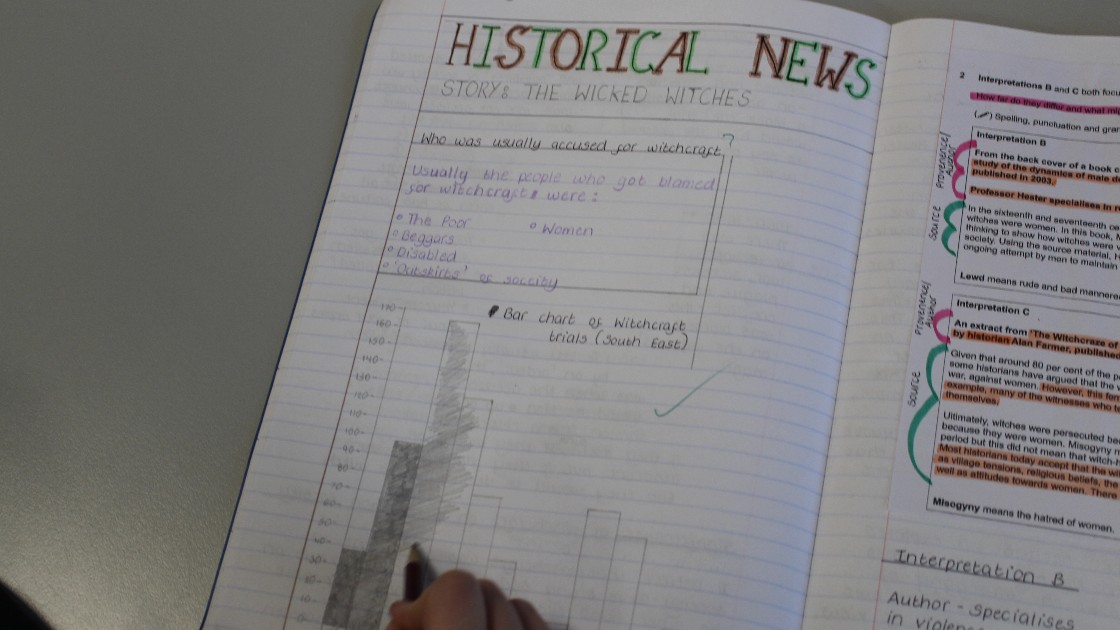 HISTORICAL NEWS
STORY: THE WICKED WITCHES
Who was usually accused for witchcraft?
Usually the people who got blamed
for witchcraft were:
• The Poor
• Beggars
• Disabled
• 'Outskirts' of society
• Women
Bar chart of Witchcraft
trials (South East)
170
160
150
140
130
120
110
100
90
80
70
60
50
40
30
20
10
0
2 Interpretations B and C both
How far do they differ and what
Spelling, punctuation and
Provenance/
Author
Interpretation B
From the back cover of a book
study of the dynamics of male
published in 2003.
Professor Hester specialises in
Source
In the sixteenth and seventeenth
witches were women. In this book,
thinking to show how witches were
society. Using the source material,
ongoing attempt by men to maintain
Lewd means rude and bad mannered
Provenance/
Author
Interpretation C
An extract from 'The Witchcraze of
by historian Alan Farmer, published
Source
Given that around 80 per cent of the
some historians have argued that the
war, against women. However, this
example, many of the witnesses who
themselves.
Ultimately, witches were persecuted
because they were women. Misogyny
period but this did not mean that
Most historians today accept that the
as village tensions, religious beliefs, the
well as attitudes towards women. There
Misogyny means the hatred of women.
Interpretation B
Author - specialises
in